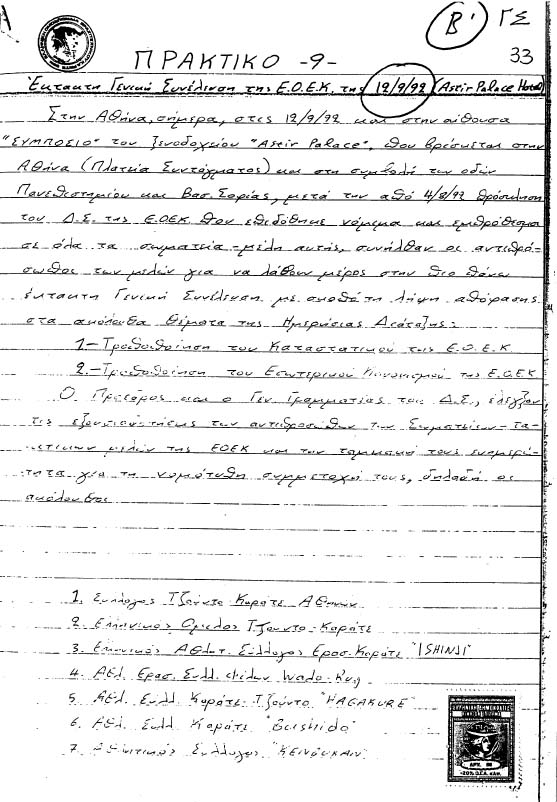 Β' ΓΣ
33
ΠΡΑΚΤΙΚΟ -9-
Έκτακτη Γενική Συνέλευση της Ε.Ο.Ε.Κ. της 12/9/92 (Astir Palace Hotel)
Στην Αθήνα, σήμερα, στις 12/9/92 και στην αίθουσα
"ΣΥΜΠΟΣΙΟ" του ξενοδοχείου "Astir Palace", που βρίσκεται στην
Αθήνα (Πλατεία Συντάγματος) και στη συμβολή των οδών
Πανεπιστημίου και Βασ. Σοφίας, μετά την από 4/8/92 πρόσκληση
του Δ.Σ. της ΕΟΕΚ που επιδόθηκε νόμιμα και εμπρόθεσμα
σε όλα τα σωματεία-μέλη αυτής, συνήλθαν οι αντιπρό-
σωποι των μελών για να λάβουν μέρος στην πιο πάνω
έκτακτη Γενική Συνέλευση με σκοπό τη λήψη απόφασης
στα ακόλουθα θέματα της Ημερήσιας Διάταξης:
1.- Τροποποίηση του Καταστατικού της Ε.Ο.Ε.Κ
2.- Τροποποίηση του Εσωτερικού Κανονισμού της Ε.Ο.Ε.Κ
Ο Πρόεδρος και ο Γεν. Γραμματέας του Δ.Σ., έλεγξαν
τις εξουσιοδοτήσεις των αντιπροσώπων των Σωματείων-Τα-
κτικών μελών της ΕΟΕΚ και την ταμειακά τους ενημερό-
τητα για τη νομότυπη συμμετοχή τους, δηλαδή οι
ακόλουθοι
1. Σύλλογος Τζούντο Καράτε Αθηνών
2. Ελληνικός Όμιλος Τζούντο-Καράτε
3. Ελληνικός Αθλητ. Σύλλογος Ερασ. Καράτε "ISHINJI"
4. Αθλ. Ερασ. Συλλ. Φίλων Wado-Kay
5. Αθλ. Συλλ. Καράτε-Τζούντο "HAGAKURE"
6. Αθλ. Συλλ. Καράτε "Bushido"
7. Αθλητικός Σύλλογος